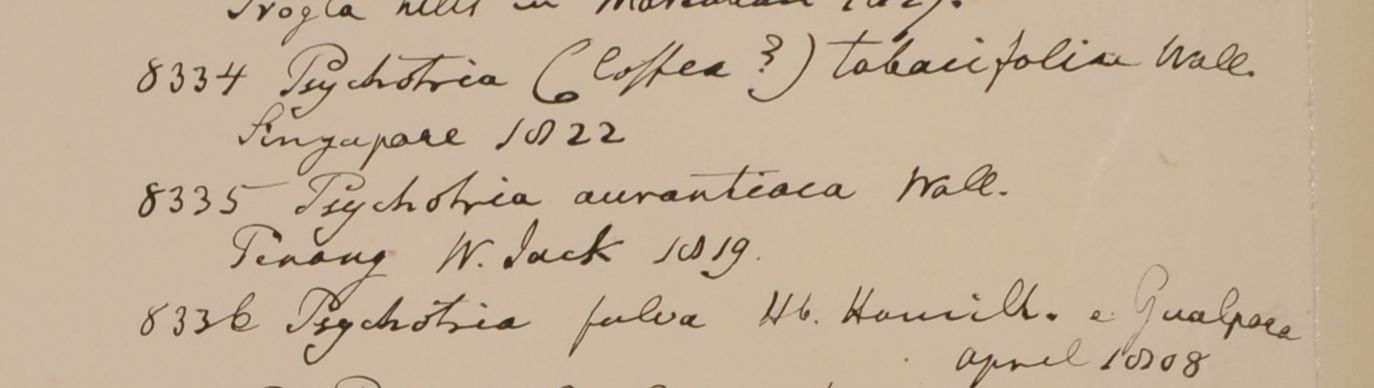 Trogla hills in Martaban 1827.
8334 Psychotria (Coffea?) tabacifolia Wall.
Singapore 1822
8335 Psychotria aurantiaca Wall.
Penang W. Jack 1819.
8336 Psychotria fulva Hb. Hamilt. e Gualpara
april 1808